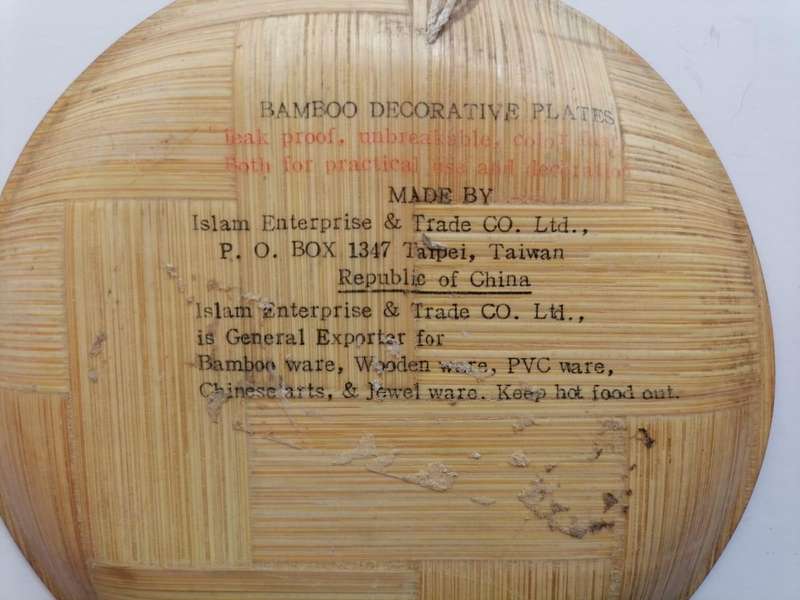 BAMBOO DECORATIVE PLATES
leak proof, unbreakable, color
Both for practical use and decoration
MADE BY
Islam Enterprise & Trade CO. Ltd.,
P. O. BOX 1347 Taipei, Taiwan
Republic of China
Islam Enterprise & Trade CO. Ltd.,
is General Exporter for
Bamboo ware, Wooden ware, PVC ware,
Chinese arts, & Jewel ware. Keep hot food out.